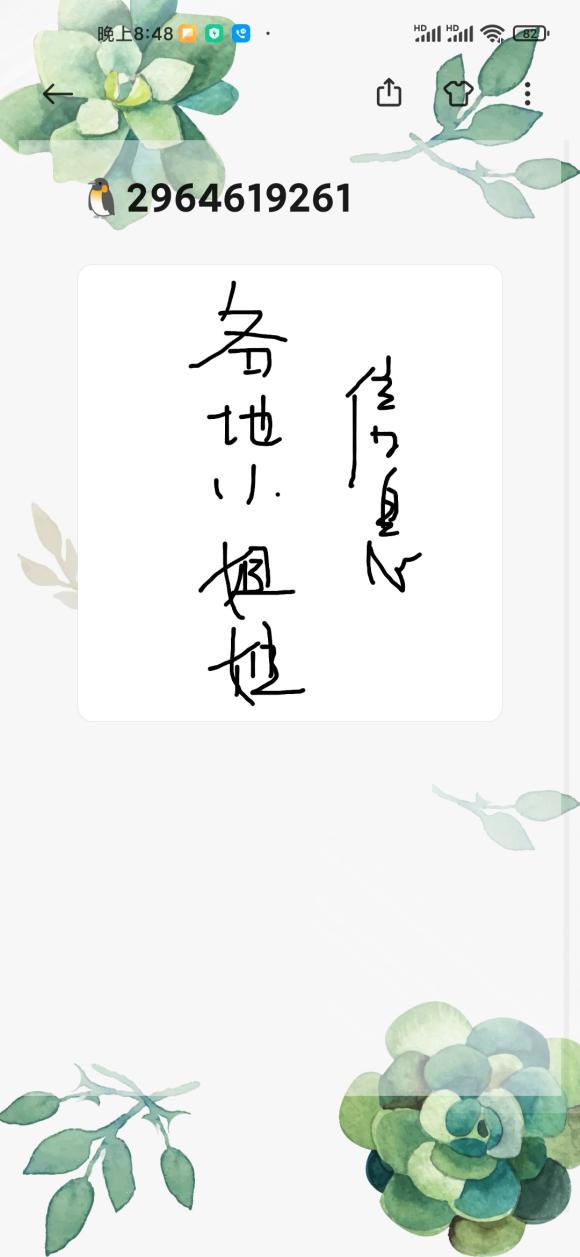 晚上8:48
HD HD 82
🐧2964619261
各地小姐姐
信息